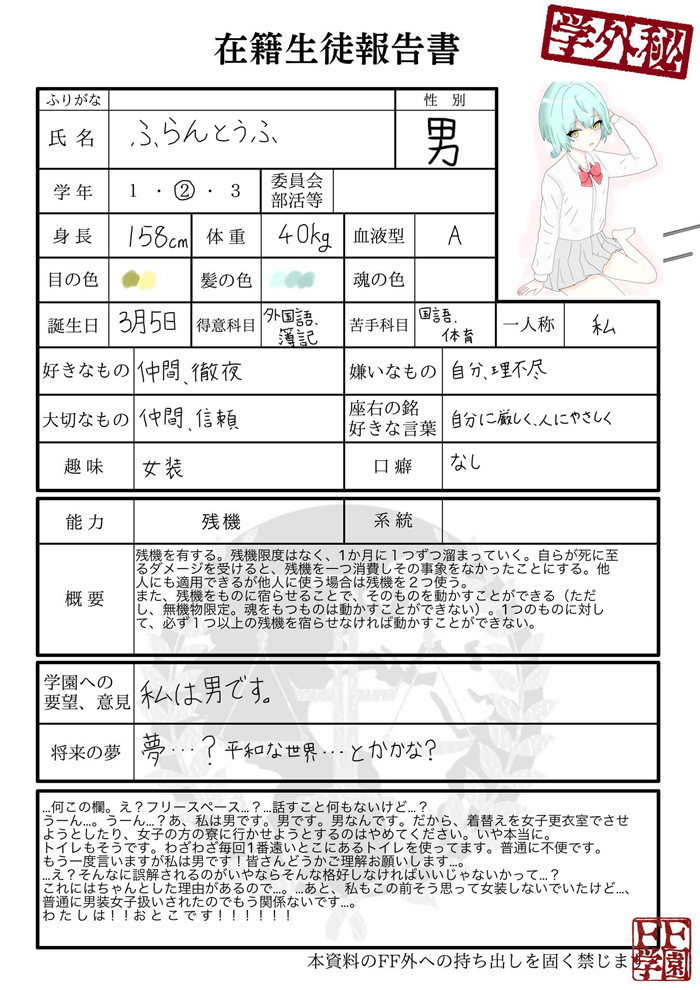 在籍生徒報告書
学外秘
ふりがな
性 別
氏 名 ふらんとうふ 男
学 年 1 ・ ② ・ 3 委員会 部活等
身 長 158cm 体 重 40kg 血液型 A
目の色 髪の色 魂の色
誕生日 3月5日 得意科目 外国語、簿記 苦手科目 国語、体育 一人称 私
好きなもの 仲間、徹夜 嫌いなもの 自分、理不尽
大切なもの 仲間、信頼 座右の銘 好きな言葉 自分に厳しく、人にやさしく
趣 味 女装 口 癖 なし
能 力 残機 系 統
概 要
残機を有する。残機限度はなく、1か月に1つずつ溜まっていく。自らが死に至
るダメージを受けると、残機を一つ消費しその事象をなかったことにする。他
人にも適用できるが他人に使う場合は残機を２つ使う。
また、残機をものに宿らせることで、そのものを動かすことができる（ただ
し、無機物限定。魂をもつものは動かすことができない）。1つのものに対し
て、必ず１つ以上の残機を宿らせなければ動かすことができない。
学園への
要望、意見 私は男です。
将来の夢 夢…？平和な世界…とかかな？
…何この欄。え？フリースペース…？…話すこと何もないけど…？
うーん…。うーん…？あ、私は男です。男です。男なんです。だから、着替えを女子更衣室でさせ
ようとしたり、女子の方の寮に行かせようとするのはやめてください。いや本当に。
トイレもそうです。わざわざ毎回1番遠いとこにあるトイレを使ってます。普通に不便です。
もう一度言いますが私は男です！皆さんどうかご理解お願いします…。
…え？そんなに誤解されるのがいやならそんな格好しなければいいじゃないかって…？
これにはちゃんとした理由があるので…。…あと、私もこの前そう思って女装しないでいたけど…、
普通に男装女子扱いされたのでもう関係ないです…。
わ た し は ！！お と こ で す ！！！！！！
本資料のFF外への持ち出しを固く禁じます
FF学園